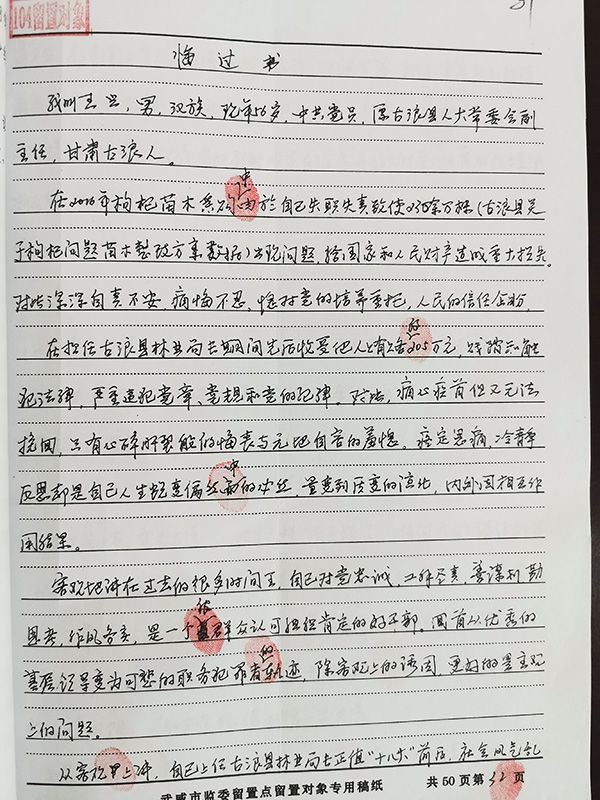 104留置对象
31
悔过书
我叫王兴，男，汉族，现年56岁，中共党员，原古浪县人大常委会副
主任，甘肃古浪人。
在2016年枸杞苗木采购中由於自己失职失责致使2300余万株（古浪县关
于枸杞问题苗木整改方案数据）出现问题，给国家和人民财产造成重大损失。
对此深深自责不安，痛悔不已，愧对党的培养重托，人民的信任企盼，
在担任古浪县林业局长期间先后收受他人所送的205万元，践踏和触
犯法律，严重违犯党章、党规和党的纪律。对此，痛心疾首但又无法
挽回，只有心碎肝裂般的悔丧与无地自容的羞愧。痛定思痛，冷静
反思却是自己人生蜕变偏中的必然，量变到质变的演化，内外因相互作
用结果。
客观地讲在过去的很多时间里，自己对党忠诚，工作尽责，善谋划勤
思考，作风务实，是一个被群众认可组织肯定的好干部。回首从优秀的
基层领导变为可悲的职务犯罪者的轨迹，除客观上的诱因，更多的是主观
上的问题。
从客观上讲，自己上任古浪县林业局长正值“十八大”前后，社会风气乱
武威市监委留置点留置对象专用稿纸 共50页第32页